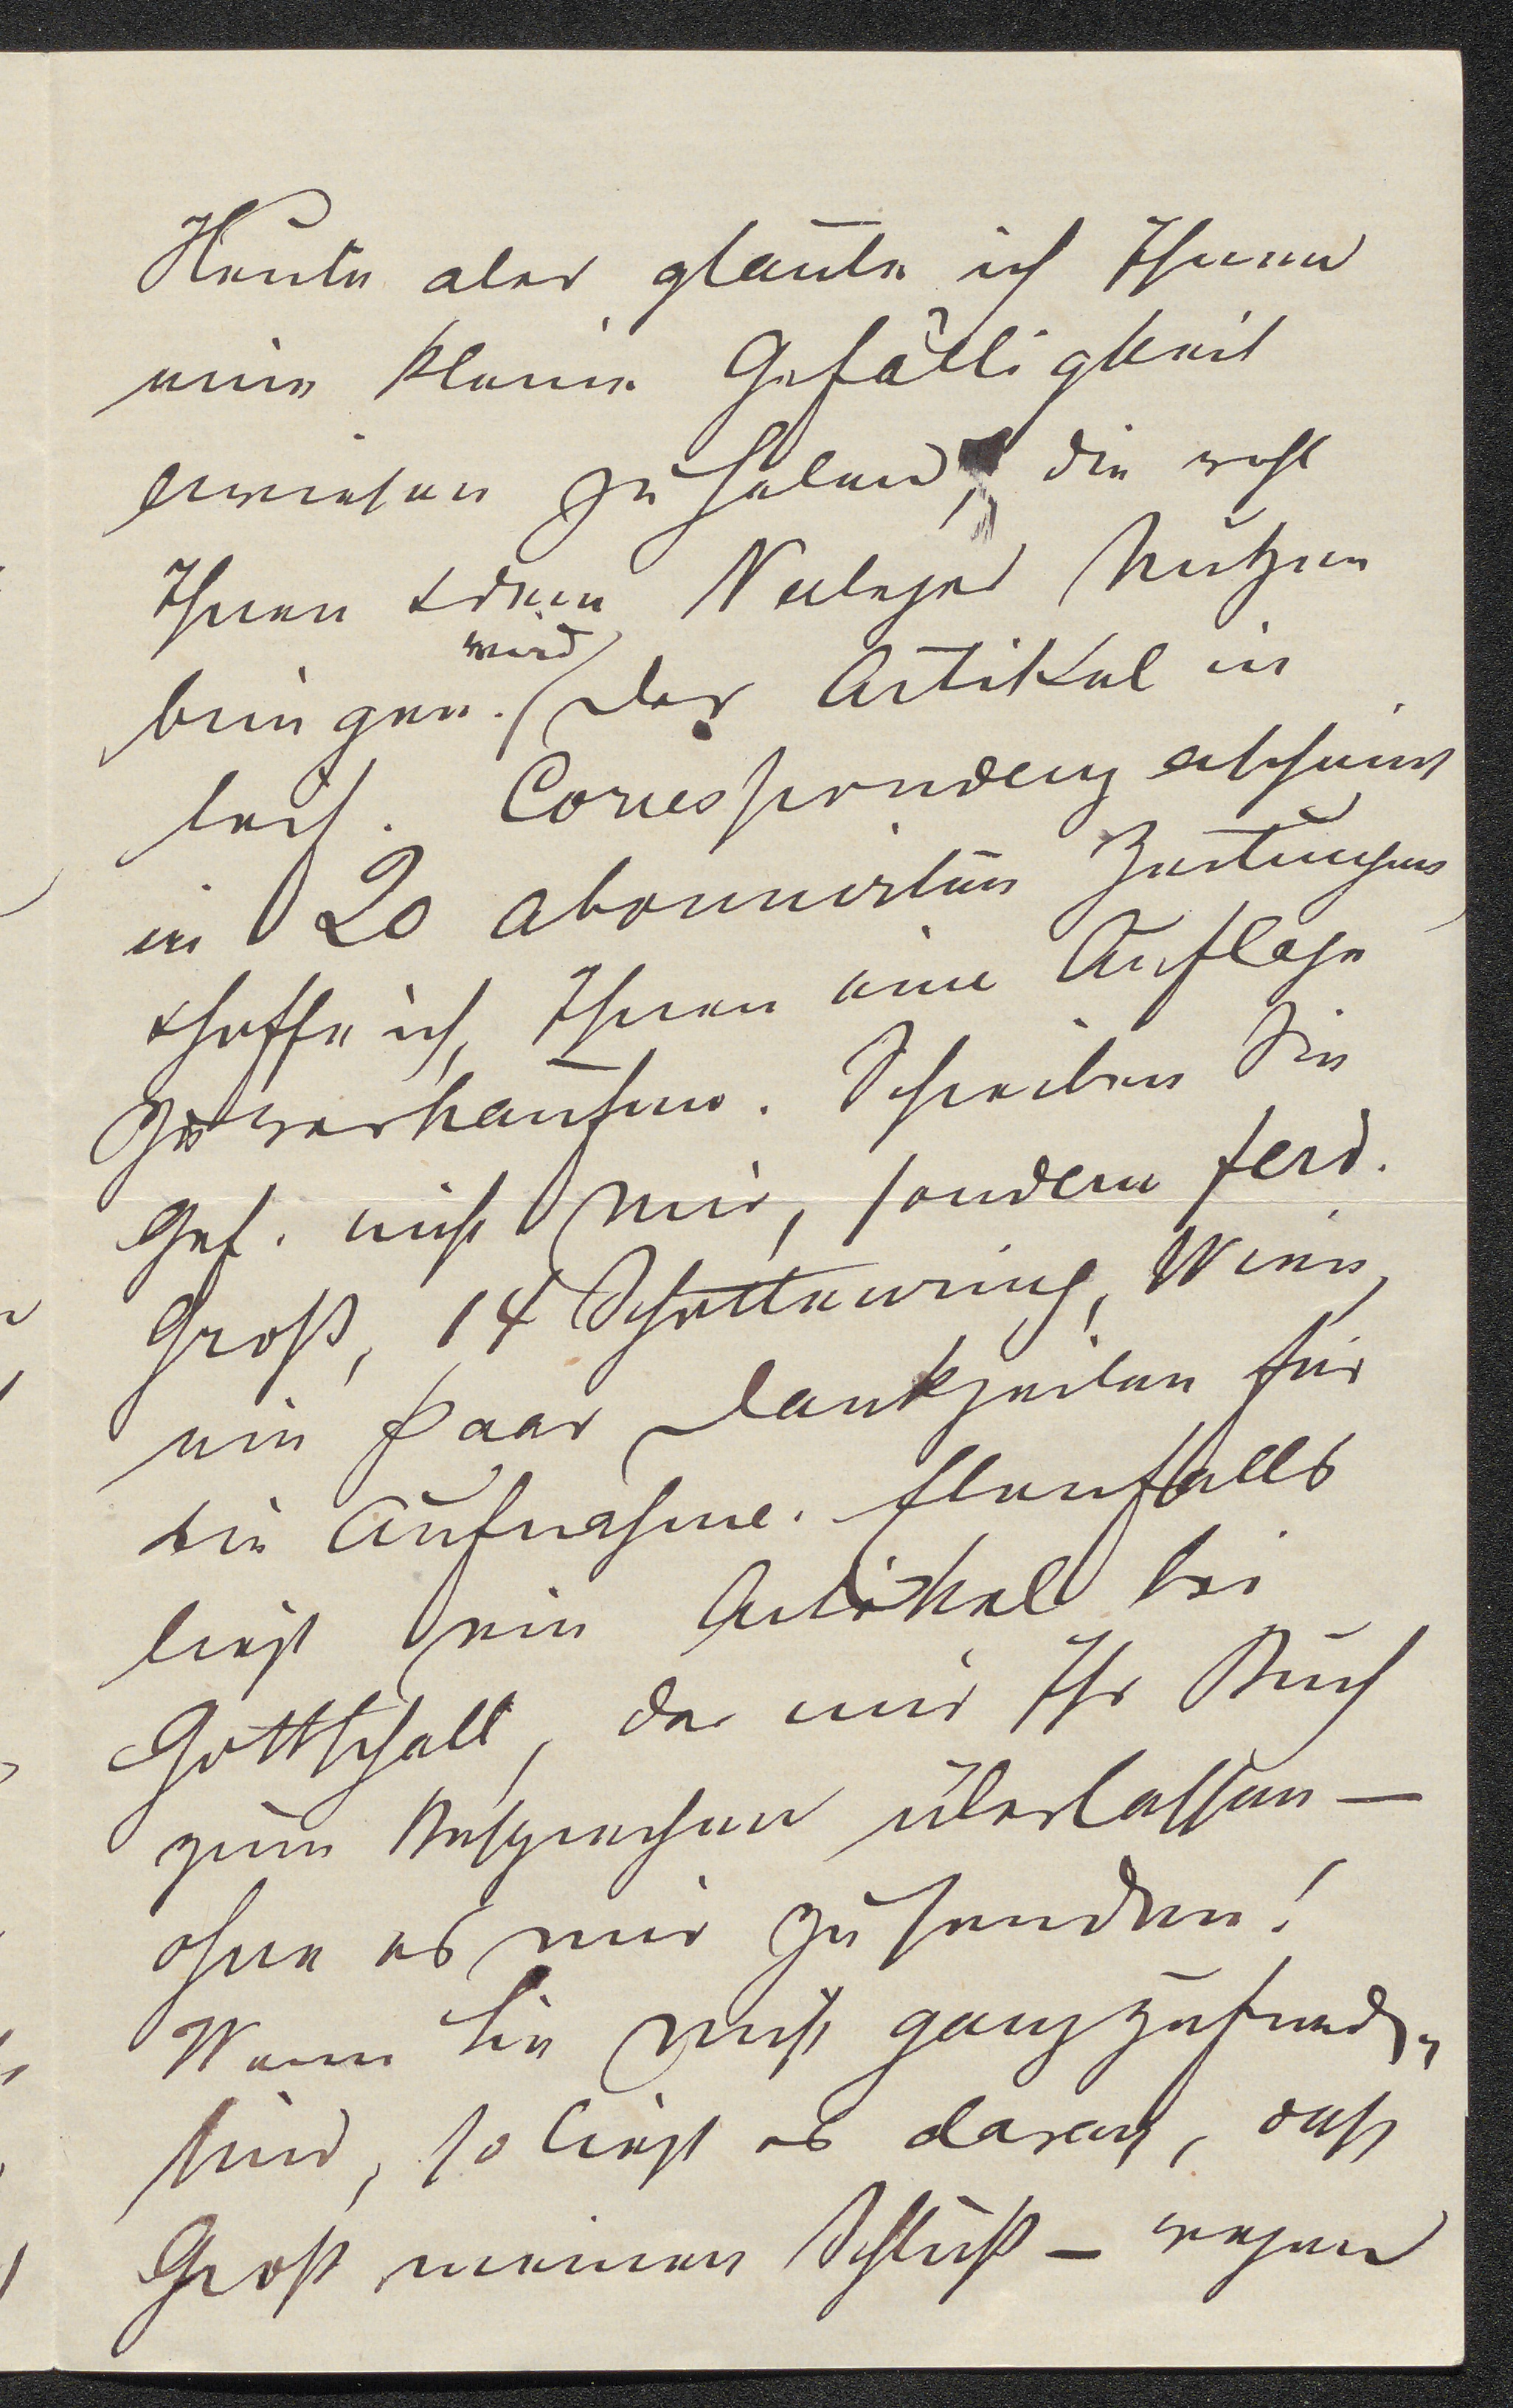 Heute aber glaube ich Ihnen
eine kleine Gefälligkeit
erwiesen zu haben, die wohl
Ihnen u dem Verleger Nutzen
bringen wird. Der Artikel in
Corresspondenz erscheint
in 20 abonnirten Zeitungen
u hoffe ich, Ihnen eine Auflage
zu verkaufen. Schreiben Sie
Gef. nicht mir, sondern Ferd.
Groß, 14 Schottenring, Wien,
ein paar Dankzeilen für
die Aufnahme. Ebenfalls
liegt ein Artikel bei
Gottschall, der mir Ihr Buch
zum Besprechen überlassen —
ohne es mir zu senden!
Wenn Sie nicht ganz zufrieden
sind, so liegt es daran, daß
Groß meinen Schluß – wegen